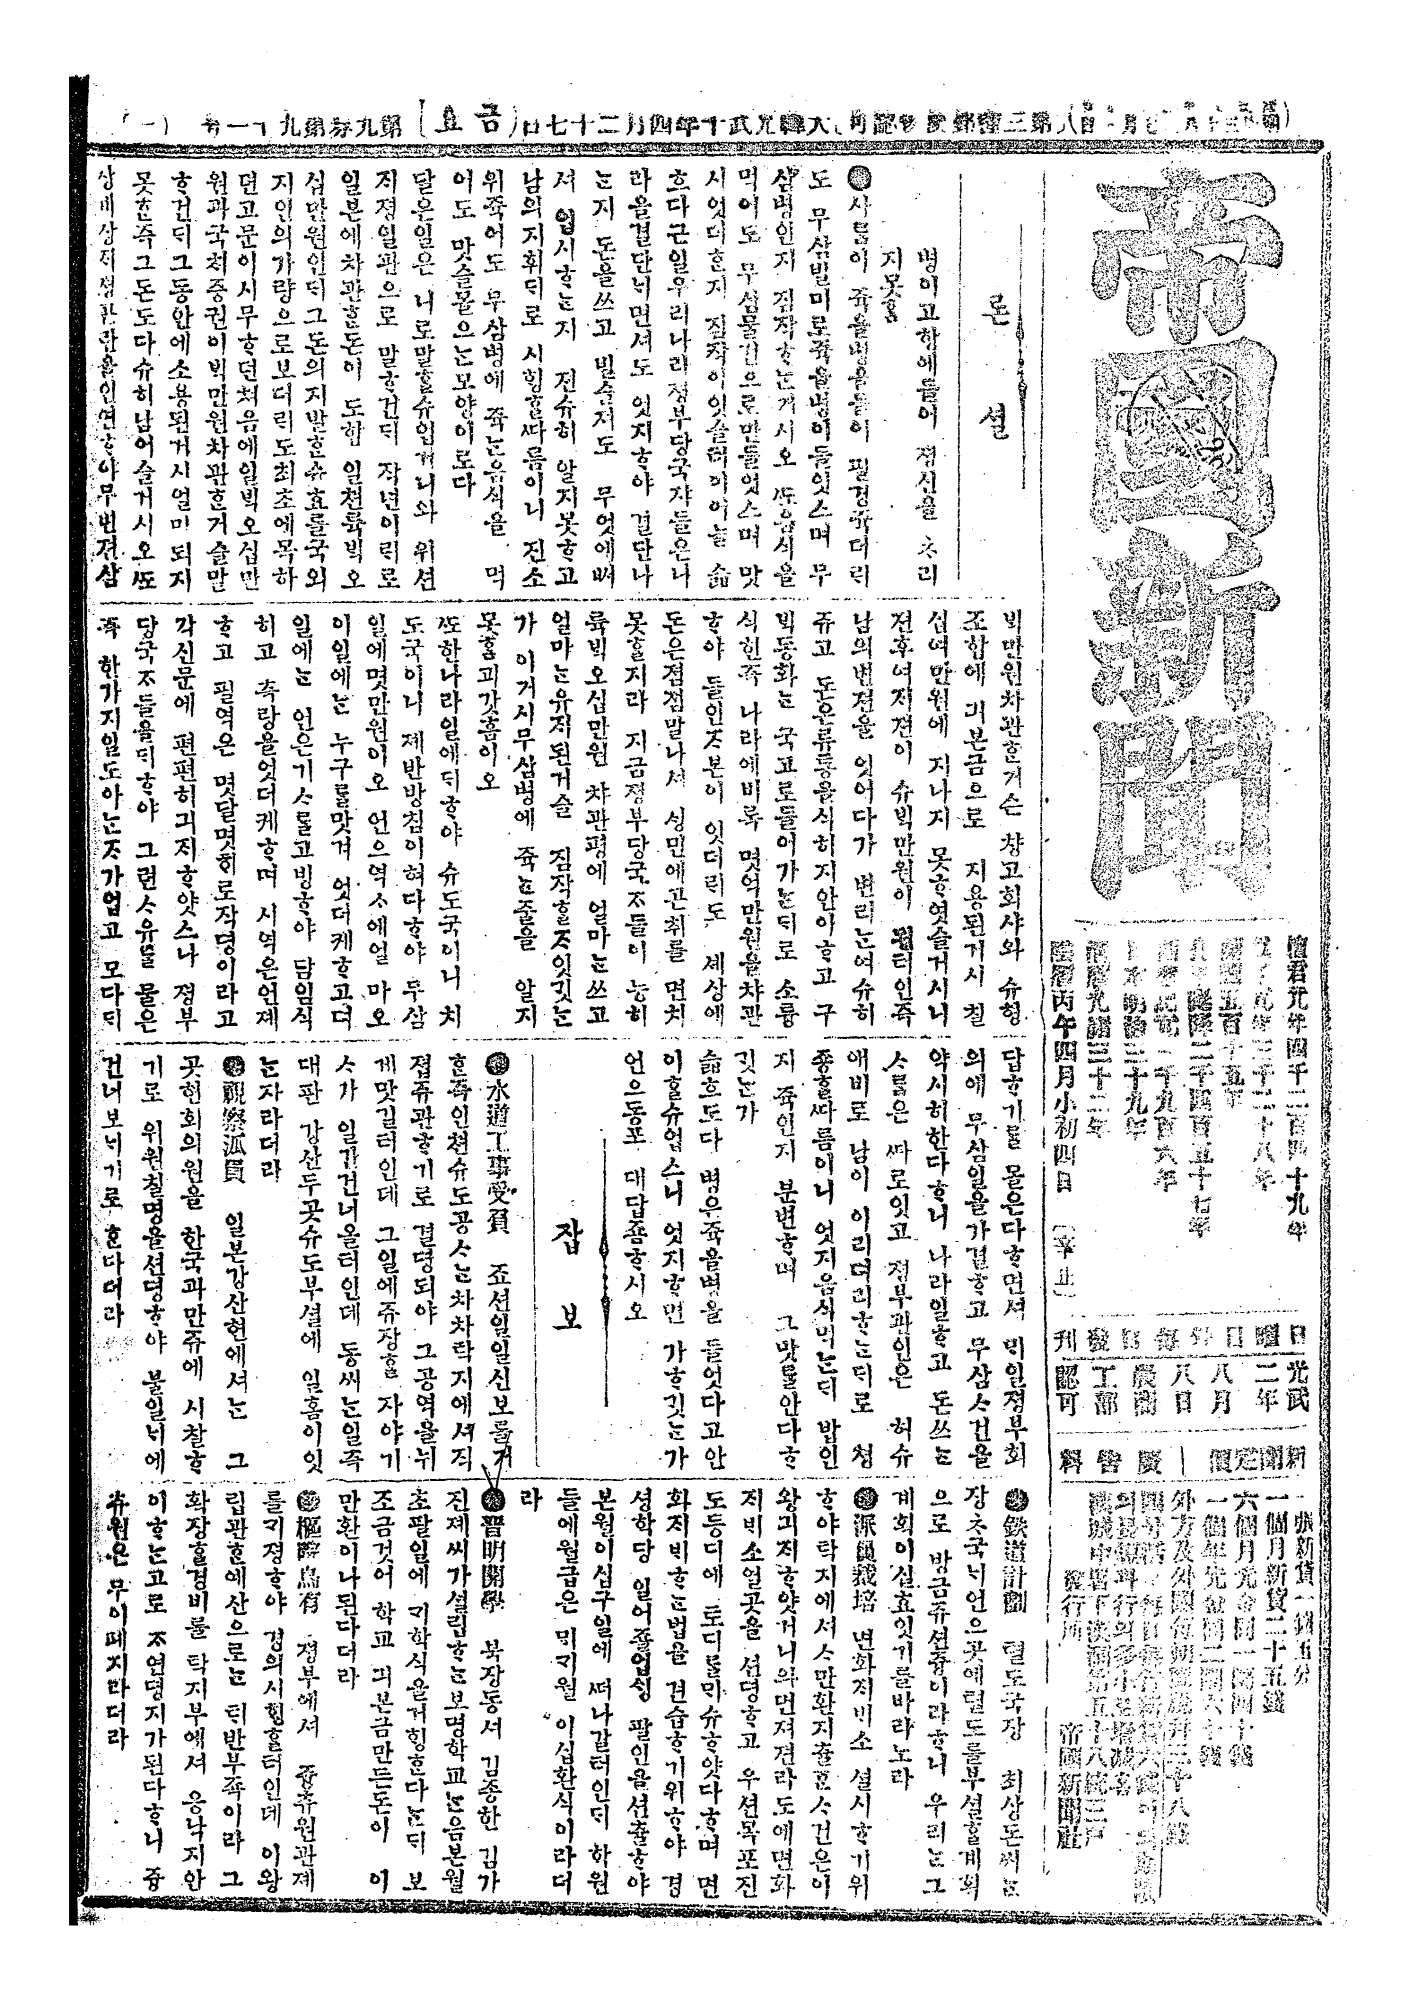 帝國新聞
大韓光武十年四月二十七日
(금요)
檀君元年四千二百四十九年
陰曆丙午四月小初四日
론셜
병이고항에들어 졍신을 ᄎ리
지못홈
◉사ᄅᆞᆷ이 쥭을병을들어 필경쥭더ᄅᆡ
도 무삼빌미로쥭을병이들엇스며 무
삼병인지 짐작ᄒᆞᄂᆞᆫ거시오 ᄯᅩ음식을
먹어도 무삼물건으로만들엇스며 맛
흐다근일우리나라졍부당국쟈들은나
라을결단ᄂᆡ면셔도 엇지ᄒᆞ야 결단나
ᄂᆞᆫ지 돈을쓰고 빗슬져도 무엇에ᄲᅢ
셔 입시ᄒᆞᄂᆞᆫ지 젼슈히 알지못ᄒᆞ고
남의지휘ᄃᆡ로 시ᄒᆡᆼᄒᆞᆯᄯᅡ름이니 진소
위쥭어도 무삼병에 쥭ᄂᆞᆫ음식을 먹
어도 맛슬몰으ᄂᆞᆫ모양이로다
달은일은 ᄂᆡ로말ᄒᆞᆯ슈업거니와 위션
ᄌᆡ졍일판으로 말ᄒᆞ건ᄃᆡ 작년이ᄅᆡ로
일본에차관ᄒᆞᆫ돈이 도합 일쳔륙ᄇᆡᆨ오
십만원인ᄃᆡ그돈의지발ᄒᆞᆫ슈효를국외
지인의가량으로보더ᄅᆡ도최초에목하
뎐고문이시무ᄒᆞ던쳐음에일ᄇᆡᆨ오십만
원과국쳐증권이ᄇᆡᆨ만원차관ᄒᆞᆫ거슬말
ᄒᆞ건ᄃᆡ그동안에소용된거시얼마되지
못ᄒᆞᆫ즉그돈도다슈히남어슬거시오ᄯᅩ
ᄇᆡᆨ만원차관ᄒᆞᆫ거슨 창고회샤와 슈형
조합에 ᄀᆡ본금으로 지용된거시 칠
십여만원에 지나지 못ᄒᆞ엿슬거시니
젼후여ᄌᆡ젼이 슈ᄇᆡᆨ만원이 될터인즉
남의변젼을 잇어다가 변리ᄂᆞᆫ여슈히
쥬고 돈은류통을식히지안이ᄒᆞ고 구
ᄇᆡᆨ동화ᄂᆞᆫ 국고로들어가ᄂᆞᆫᄃᆡ로 소륭
식힌즉 나라에비록 몃억만원을챠관
ᄒᆞ야 들인ᄌᆞ본이 잇더ᄅᆡ도 셰상에
돈은졈졈말나셔 ᄉᆡᆼ민에곤최를 면치
못ᄒᆞᆯ지라 지금졍부당국ᄌᆞ들이 능히
륙ᄇᆡᆨ오십만원 챠관평에 얼마ᄂᆞᆫ쓰고
얼마ᄂᆞᆫ유ᄌᆡ된거슬 짐작ᄒᆞᆯᄌᆞ잇깃ᄂᆞᆫ
가 이거시무삼병에 쥭ᄂᆞᆫ줄을 알지
못홈과갓홈이오
ᄯᅩ한나라일에ᄃᆡᄒᆞ야 슈도국이니 치
도국이니 졔반방침이허다ᄒᆞ야 무삼
일에몃만원이오 언으역ᄉᆞ에얼 마오
이일에ᄂᆞᆫ 누구를맛겨 엇더케ᄒᆞ고뎌
일에ᄂᆞᆫ 언은기ᄉᆞ를고빙ᄒᆞ야 담임식
히고 측량을엇더케ᄒᆞ며 시역은언졔
ᄒᆞ고 필역은 몃달몃ᄒᆡ로작뎡이라고
각신문에 편편히긔ᄌᆡᄒᆞ얏스나 졍부
당국ᄌᆞ들을ᄃᆡᄒᆞ야 그런ᄉᆞ유를 물은
즉 한가지일도아ᄂᆞᆫᄌᆞ가업고 모다ᄃᆡ
답ᄒᆞ기를 몰은다ᄒᆞ면셔 ᄆᆡ일졍부회
의에 무삼일을가결ᄒᆞ고 무삼ᄉᆞ건을
약시히한다ᄒᆞ니 나라일ᄒᆞ고 돈쓰ᄂᆞᆫ
ᄉᆞ람은 ᄯᅡ로잇고 졍부관인은 허슈
애비로 남이 이리뎌리ᄒᆞᄂᆞᆫᄃᆡ로 쳥
죵ᄒᆞᆯᄯᅡ름이니 엇지음식먹ᄂᆞᆫᄃᆡ 밥인
지 쥭인지 분변ᄒᆞ며 그맛을안다ᄒᆞ
깃ᄂᆞᆫ가
슯흐도다 병은쥭을병을 들엇다고안
이ᄒᆞᆯ슈업스니 엇지ᄒᆞ면 가ᄒᆞ깃ᄂᆞᆫ가
언으동포 대답죰ᄒᆞ시오
잡보
◉水道工事受負 죠션일일신보를거
ᄒᆞᆫ즉인쳔슈도공ᄉᆞᄂᆞᆫ차차탁지에셔직
졉쥬관ᄒᆞ기로 결뎡되야 그공역을뉘
게맛길터인데 그일에쥬장ᄒᆞᆯ 자야기
ᄉᆞ가 일간건너올터인데 동씨ᄂᆞᆫ일즉
대판 강산두곳슈도부셜에 일홈이잇
ᄂᆞᆫ자라더라
◉觀察派員 일본강산현에셔ᄂᆞᆫ 그
곳현회의원을 한국과만쥬에 시찰ᄒᆞ
기로 위원칠명을션뎡ᄒᆞ야 불일ᄂᆡ에
건너보ᄂᆡ기로 ᄒᆞᆫ다더라
◉鉄道計劃 텰도국장 최상돈씨ᄂᆞᆫ
장ᄎᆞ국ᄂᆡ언으곳에텰도를부셜ᄒᆞᆯ계획
으로 방금쥬션즁이라ᄒᆞ니 우리ᄂᆞᆫ그
계획이실효잇기를바라노라
◉派員栽培 면화ᄌᆡᄇᆡ소 셜시ᄒᆞ기위
ᄒᆞ야탁지에셔ᄉᆞ만환지츌ᄒᆞᆫᄉᆞ건은이
왕긔ᄌᆡᄒᆞ얏거니와먼져젼라도에면화
ᄌᆡᄇᆡ소열곳을 션뎡ᄒᆞ고 우션목포진
도등디에 토디를ᄆᆡ슈ᄒᆞ얏다ᄒᆞ며 면
화ᄌᆡᄇᆡᄒᆞᄂᆞᆫ법을 견습ᄒᆞ기위ᄒᆞ야 경
셩학당 일어졸업ᄉᆡᆼ 팔인을션츌ᄒᆞ야
본월이십구일에 ᄯᅥ나갈터인ᄃᆡ 학원
들에월급은 ᄆᆡᄀᆡ월 이십환식이라더
라
◉普明開學 북장동셔 김종한 김가
진졔씨가셜립ᄒᆞᄂᆞᆫ보명학교ᄂᆞᆫ음본월
초팔일에 ᄀᆡ학식을거ᄒᆡᆼᄒᆞᆫ다ᄂᆞᆫᄃᆡ 보
조금것어 학교 ᄀᆡ본금만든돈이 이
만환이나된다더라
◉樞院烏有 졍부에셔 즁츄원관졔
를ᄀᆡ졍ᄒᆞ야 경의시힝ᄒᆞᆯ터인데 이왕
립관ᄒᆞᆫ예산으로ᄂᆞᆫ ᄐᆡ반부족이라 그
확장ᄒᆞᆯ경비를 탁지부에셔 응낙지안
이ᄒᆞᄂᆞᆫ고로 ᄌᆞ연뎡지가된다ᄒᆞ니 즁
츄원은 무이폐지라더라
帝國新聞社